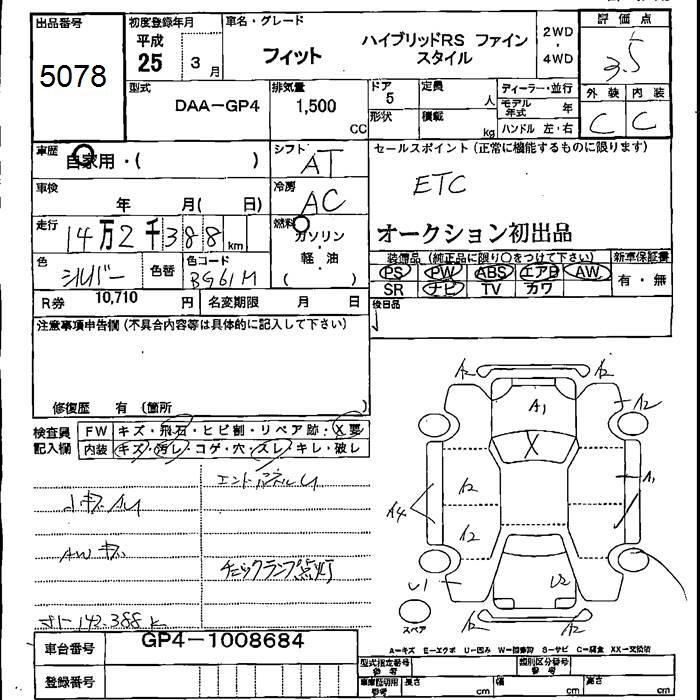 出品番号
5078
初度登録年月
平成
25
3
月
車名・グレード
フィット
ハイブリッドRS ファイン
スタイル
2WD
・
4WD
評価点
3.5
外装
内装
C
C
型式
DAA-GP4
排気量
1,500
CC
ドア
5
形状
定員
人
積載
kg
ディーラー・並行
モデル
年式
年
ハンドル 左・右
車歴
自家用・( )
シフト
AT
車検
年 月( 日)
冷房
AC
走行
14万2千388
km
燃料
ガソリン
・
軽・油
( )
色
シルバー
色替
色コード
BG61M
R券
10,710
円
名変期限
月
日
セールスポイント(正常に機能するものに限ります)
ETC
オークション初出品
装備品(純正品に限り○をつけて下さい)
新車保証書
PS
PW
ABS
エアB
AW
SR
ナビ
TV
カワ
有・無
後日品
注意事項申告欄(不具合内容等は具体的に記入して下さい)
修復歴 有 (箇所 )
検査員
記入欄
FW
キズ・飛石・ヒビ割・リペア跡・X要
内装
キズ・汚レ・コゲ・穴・スレ・キレ・破レ
エンドパネルU
小キズAU
AWキズ
チェックランプ点灯
142.388k
A2
A2
A1
A2
X
A2
A1
A4
A2
U1
U2
A2
A2
スペア
A-キズ E-エクボ U-凹み W-補修跡 S-サビ C-腐食 XX-交換済
車台番号
GP4-1008684
登録番号
型式指定番号
参考
類別区分番号
参考
車庫証切用
参考
長さ
cm
幅
cm
高さ
cm